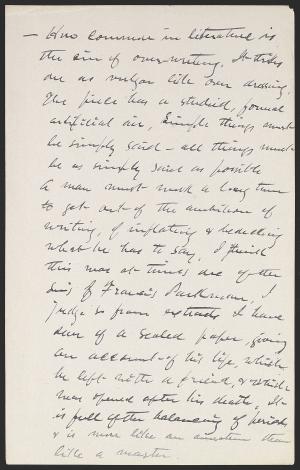 — How common in literature is
the sin of over-writing. It strikes
one as vulgar like over dressing.
The piece has a studied, formal
artificial air. Simple things must
be simply said – all things must
be as simply said as possible
A man must work a long time
to get out of the ambition of
writing, of inflating &
what he has to say. I think
this was at times one of the
sins of Francis Parkman, I
judge so from extracts I have
seen of a sealed paper, giving
an account of his life, which
he left with a friend, & which
was opened after his death. It
is full of the balancing of periods
& is more like an amateur than
like a master.